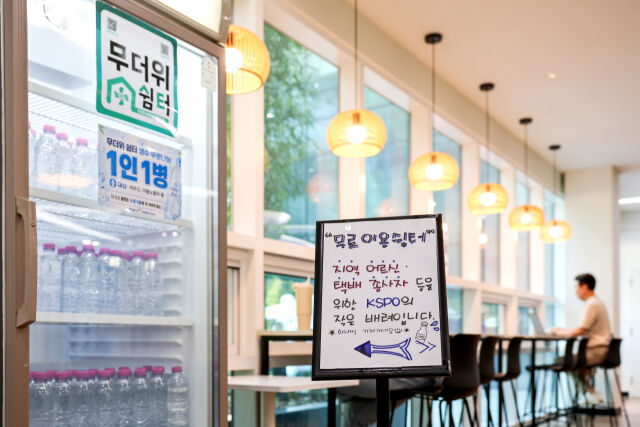 무더위
쉼터
무더위 쉼터 생수 무료나눔
1인 1병
"무료 이용 쉼터"
지역 어르신
택배 종사자 등을
위한 KSPO의
작은 배려입니다.